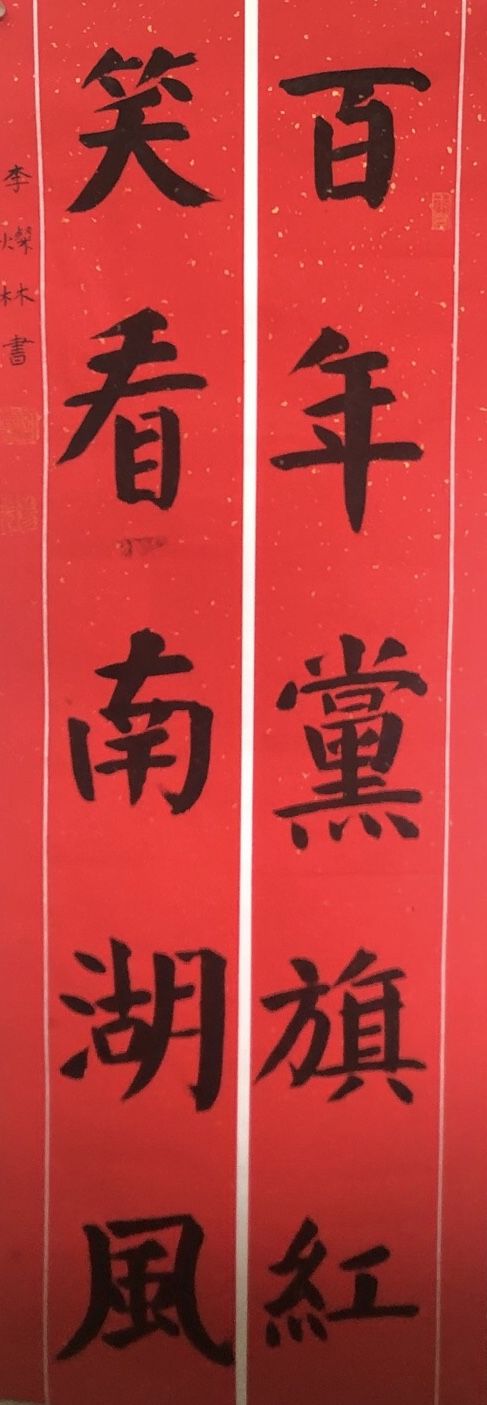 百年黨旗紅
笑看南湖風
李燦林書